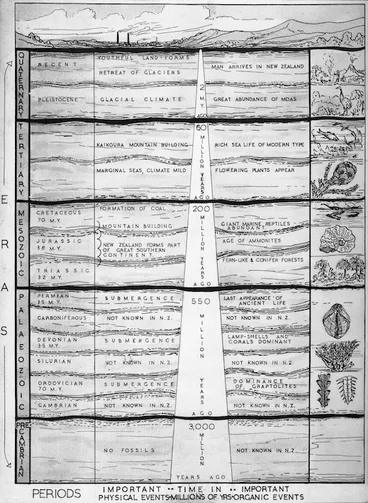 QUATERNARY
RECENT
YOUTHFUL LAND-FORMS
RETREAT OF GLACIERS
MAN ARRIVES IN NEW ZEALAND
PLEISTOCENE
GLACIAL CLIMATE
2
M.Y.
AGO
GREAT ABUNDANCE OF MOAS
TERTIARY
KAIKOURA MOUNTAIN BUILDING
MARGINAL SEAS, CLIMATE MILD
60
MILLION YEARS
AGO
RICH SEA LIFE OF MODERN TYPE
FLOWERING PLANTS APPEAR
ERAS
MESOZOIC
CRETACEOUS
70 M.Y.
FORMATION OF COAL
MOUNTAIN BUILDING
JURASSIC
NEW ZEALAND FORMS PART
OF GREAT SOUTHERN
CONTINENT
TRIASSIC
32 M.Y.
200
MILLION YEARS
AGO
GIANT MARINE REPTILES
ABUNDANT
AGE OF AMMONITES
FERN-LIKE & CONIFER FORESTS
PALAEOZOIC
PERMIAN
SUBMERGENCE
LAST APPEARANCE OF
ANCIENT LIFE
CARBONIFEROUS
NOT KNOWN IN N.Z.
NOT KNOWN IN N.Z.
DEVONIAN
SUBMERGENCE
LAMP-SHELLS AND
CORALS DOMINANT
SILURIAN
NOT KNOWN IN N.Z.
NOT KNOWN IN N.Z.
ORDOVICIAN
70 M.Y.
SUBMERGENCE
DOMINANCE
OF GRAPTOLITES
CAMBRIAN
NOT KNOWN IN N.Z.
NOT KNOWN IN N.Z.
550
MILLION
YEARS
AGO
PRE-CAMBRIAN
NO FOSSILS
3,000
MILLION
YEARS AGO
NOT KNOWN IN N.Z.
PERIODS
IMPORTANT
PHYSICAL EVENTS
TIME IN
MILLIONS OF YRS
IMPORTANT
ORGANIC EVENTS